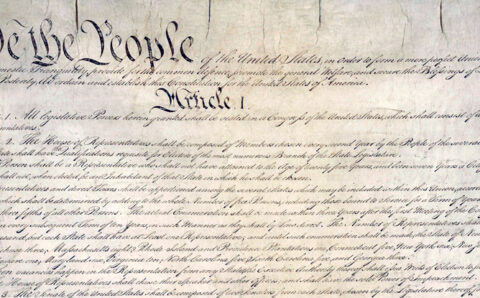 We the People of the United States, in order to form a more perfect Union
domestic Tranquility, provide for the common defence, promote the general Welfare, and secure the Blessings of
Posterity, do ordain and establish this Constitution for the United States of America.
Article I
1. All legislative Powers herein granted shall be vested in a Congress of the United States, which shall consist of
2. The House of Representatives shall be composed of Members chosen every second Year by the People of the several
State shall have the Qualifications requisite for Electors of the most numerous Branch of the State Legislature.
Person shall be a Representative who shall not have attained to the Age of twenty five Years, and been seven Years a
shall not, when elected, be an Inhabitant of that State in which he shall be chosen.
Representatives and direct Taxes shall be apportioned among the several States which may be included within this Union, according
which shall be determined by adding to the whole Number of free Persons, including those bound to Service for a Term of Years
three fifths of all other Persons. The actual Enumeration shall be made within three Years after the first Meeting of the
every subsequent Term of ten Years, in such Manner as they shall by Law direct. The Number of Representatives
and each State shall have at Least one Representative; and until such enumeration shall be
three, Massachusetts eight, Rhode Island and Providence Plantations one, Connecticut five, New York six, New
one, Maryland six, Virginia ten, North Carolina five, South Carolina five, and Georgia three.
vacancies happen in the Representation from any State, the Executive Authority thereof shall issue Writs of Election to
House of Representatives shall chuse their Speaker and other Officers; and shall have the sole Power of Impeachment.
3. The Senate of the United States shall be composed of two Senators from each State, chosen by the Legislature thereof,